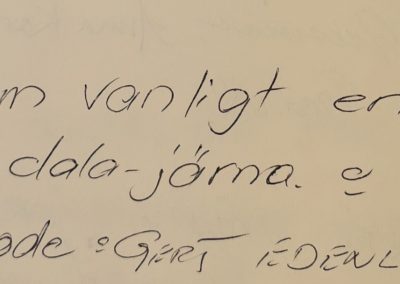 m vanligt en
dala-järna.
GERT EDENL